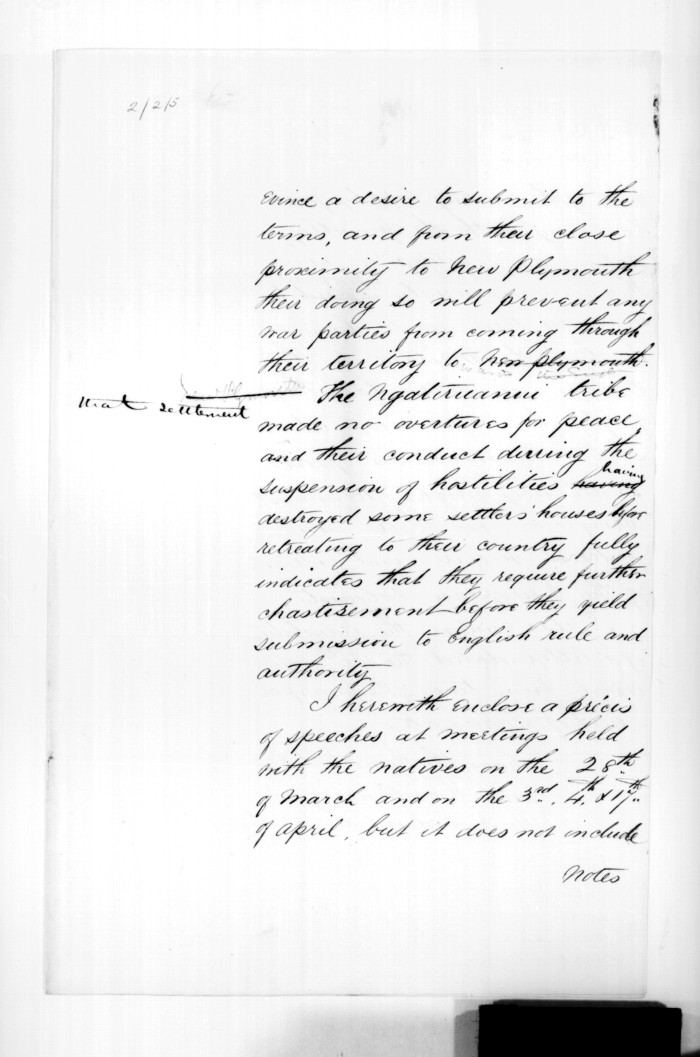 2/2/5
evince a desire to submit to the
terms, and from their close
proximity to New Plymouth
their doing so will prevent any
war parties from coming through
their territory to New Plymouth.
that settlement
The Ngatiruanui tribe
made no overtures for peace,
and their conduct durring the
having
suspension of hostilities having
destroyed some settlers' houses before
retreating to their country fully
indicates that they require further
chastisement before they yield
submission to English rule and
authority
I herewith enclose a précis
of speeches at meetings held
with the natives on the 28th
of March and on the 3rd, 4th & 17th
of April, but it does not include
Notes